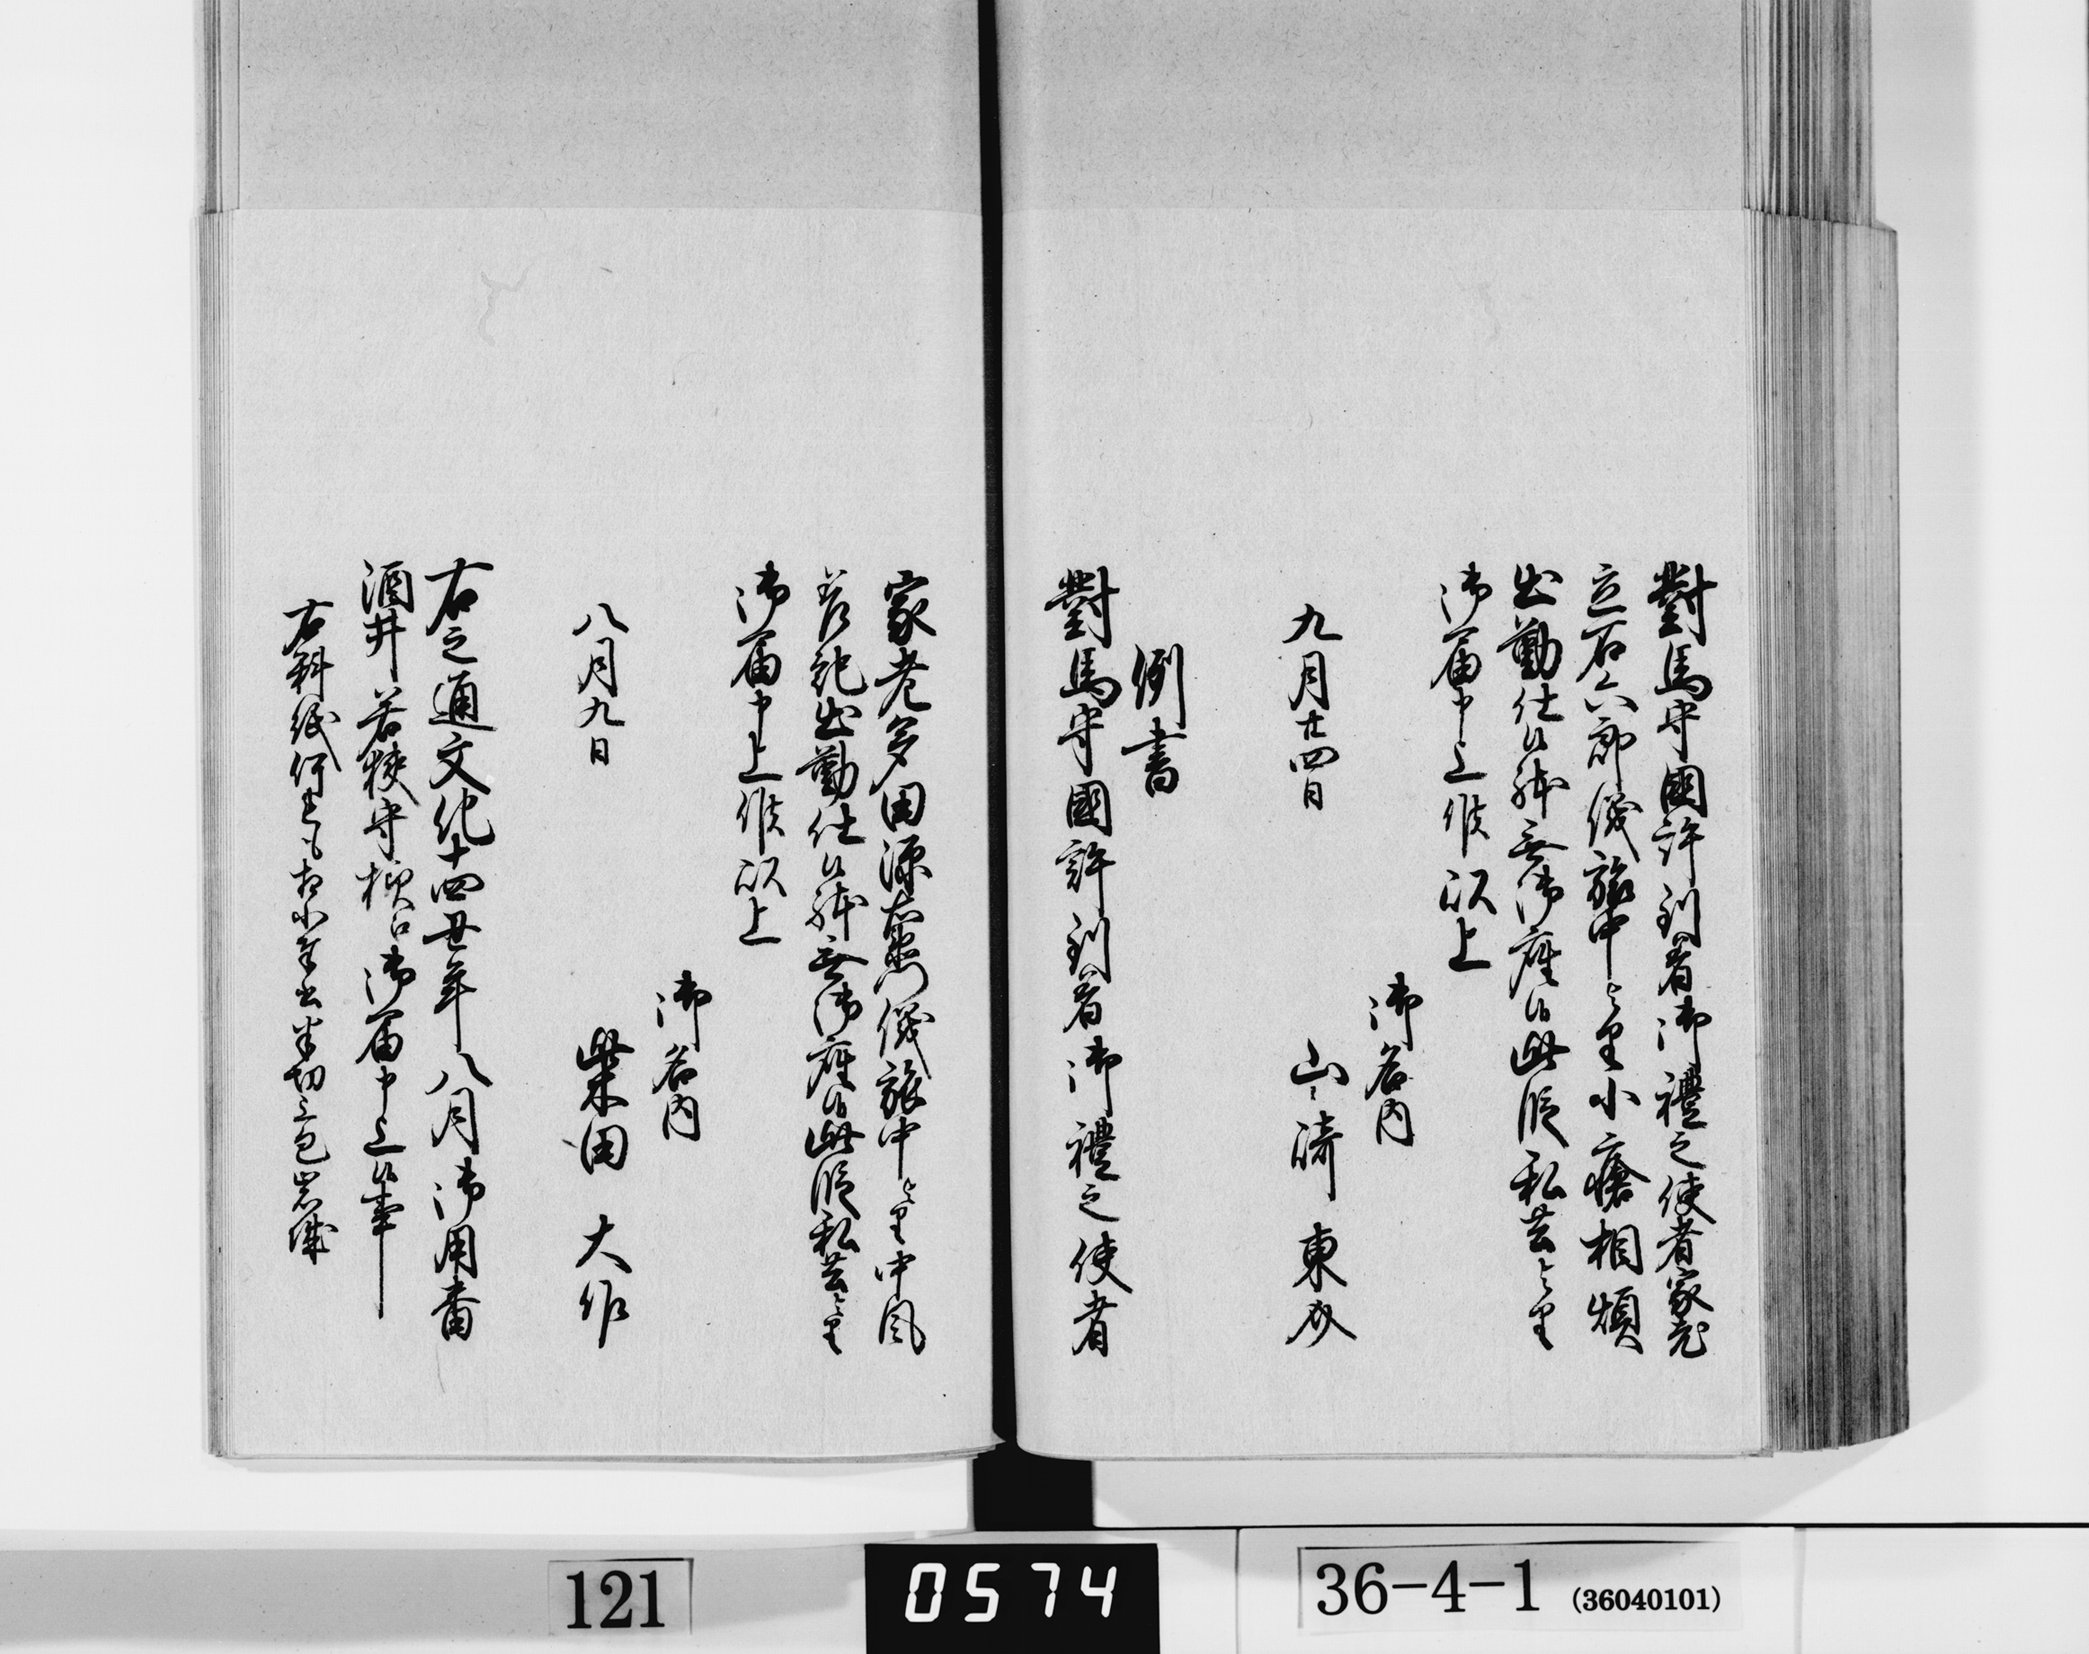 對馬守國許到着御禮之使者家老
立石六郎儀旅中ゟ小瘡相煩
出勤仕候躰無御座候此段私共ゟ
御届申上候以上
御名内
九月廿四日 山崎東
例書
對馬守國許到着御禮之使者
家老多田源右衛門儀旅中ゟ中風
差発出勤仕候躰無御座候此段私共ゟ
御届申上候以上
御名内
八月九日 柴田大作
右之通文化十四丑年八月御用番
酒井若狭守様江御届申上候事
右料紙何も相小奉書半切上包美濃
121
0574
36-4-1 (36040101)